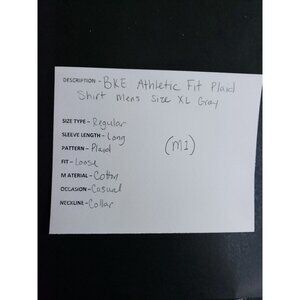 DESCRIPTION - BKE Athletic Fit Plaid
Shirt Mens Size XL Gray
SIZE TYPE - Regular
SLEEVE LENGTH - Long
PATTERN - Plaid
(M1)
FIT - Loose
MATERIAL - Cotton
OCCASION - Casual
NECKLINE - Collar